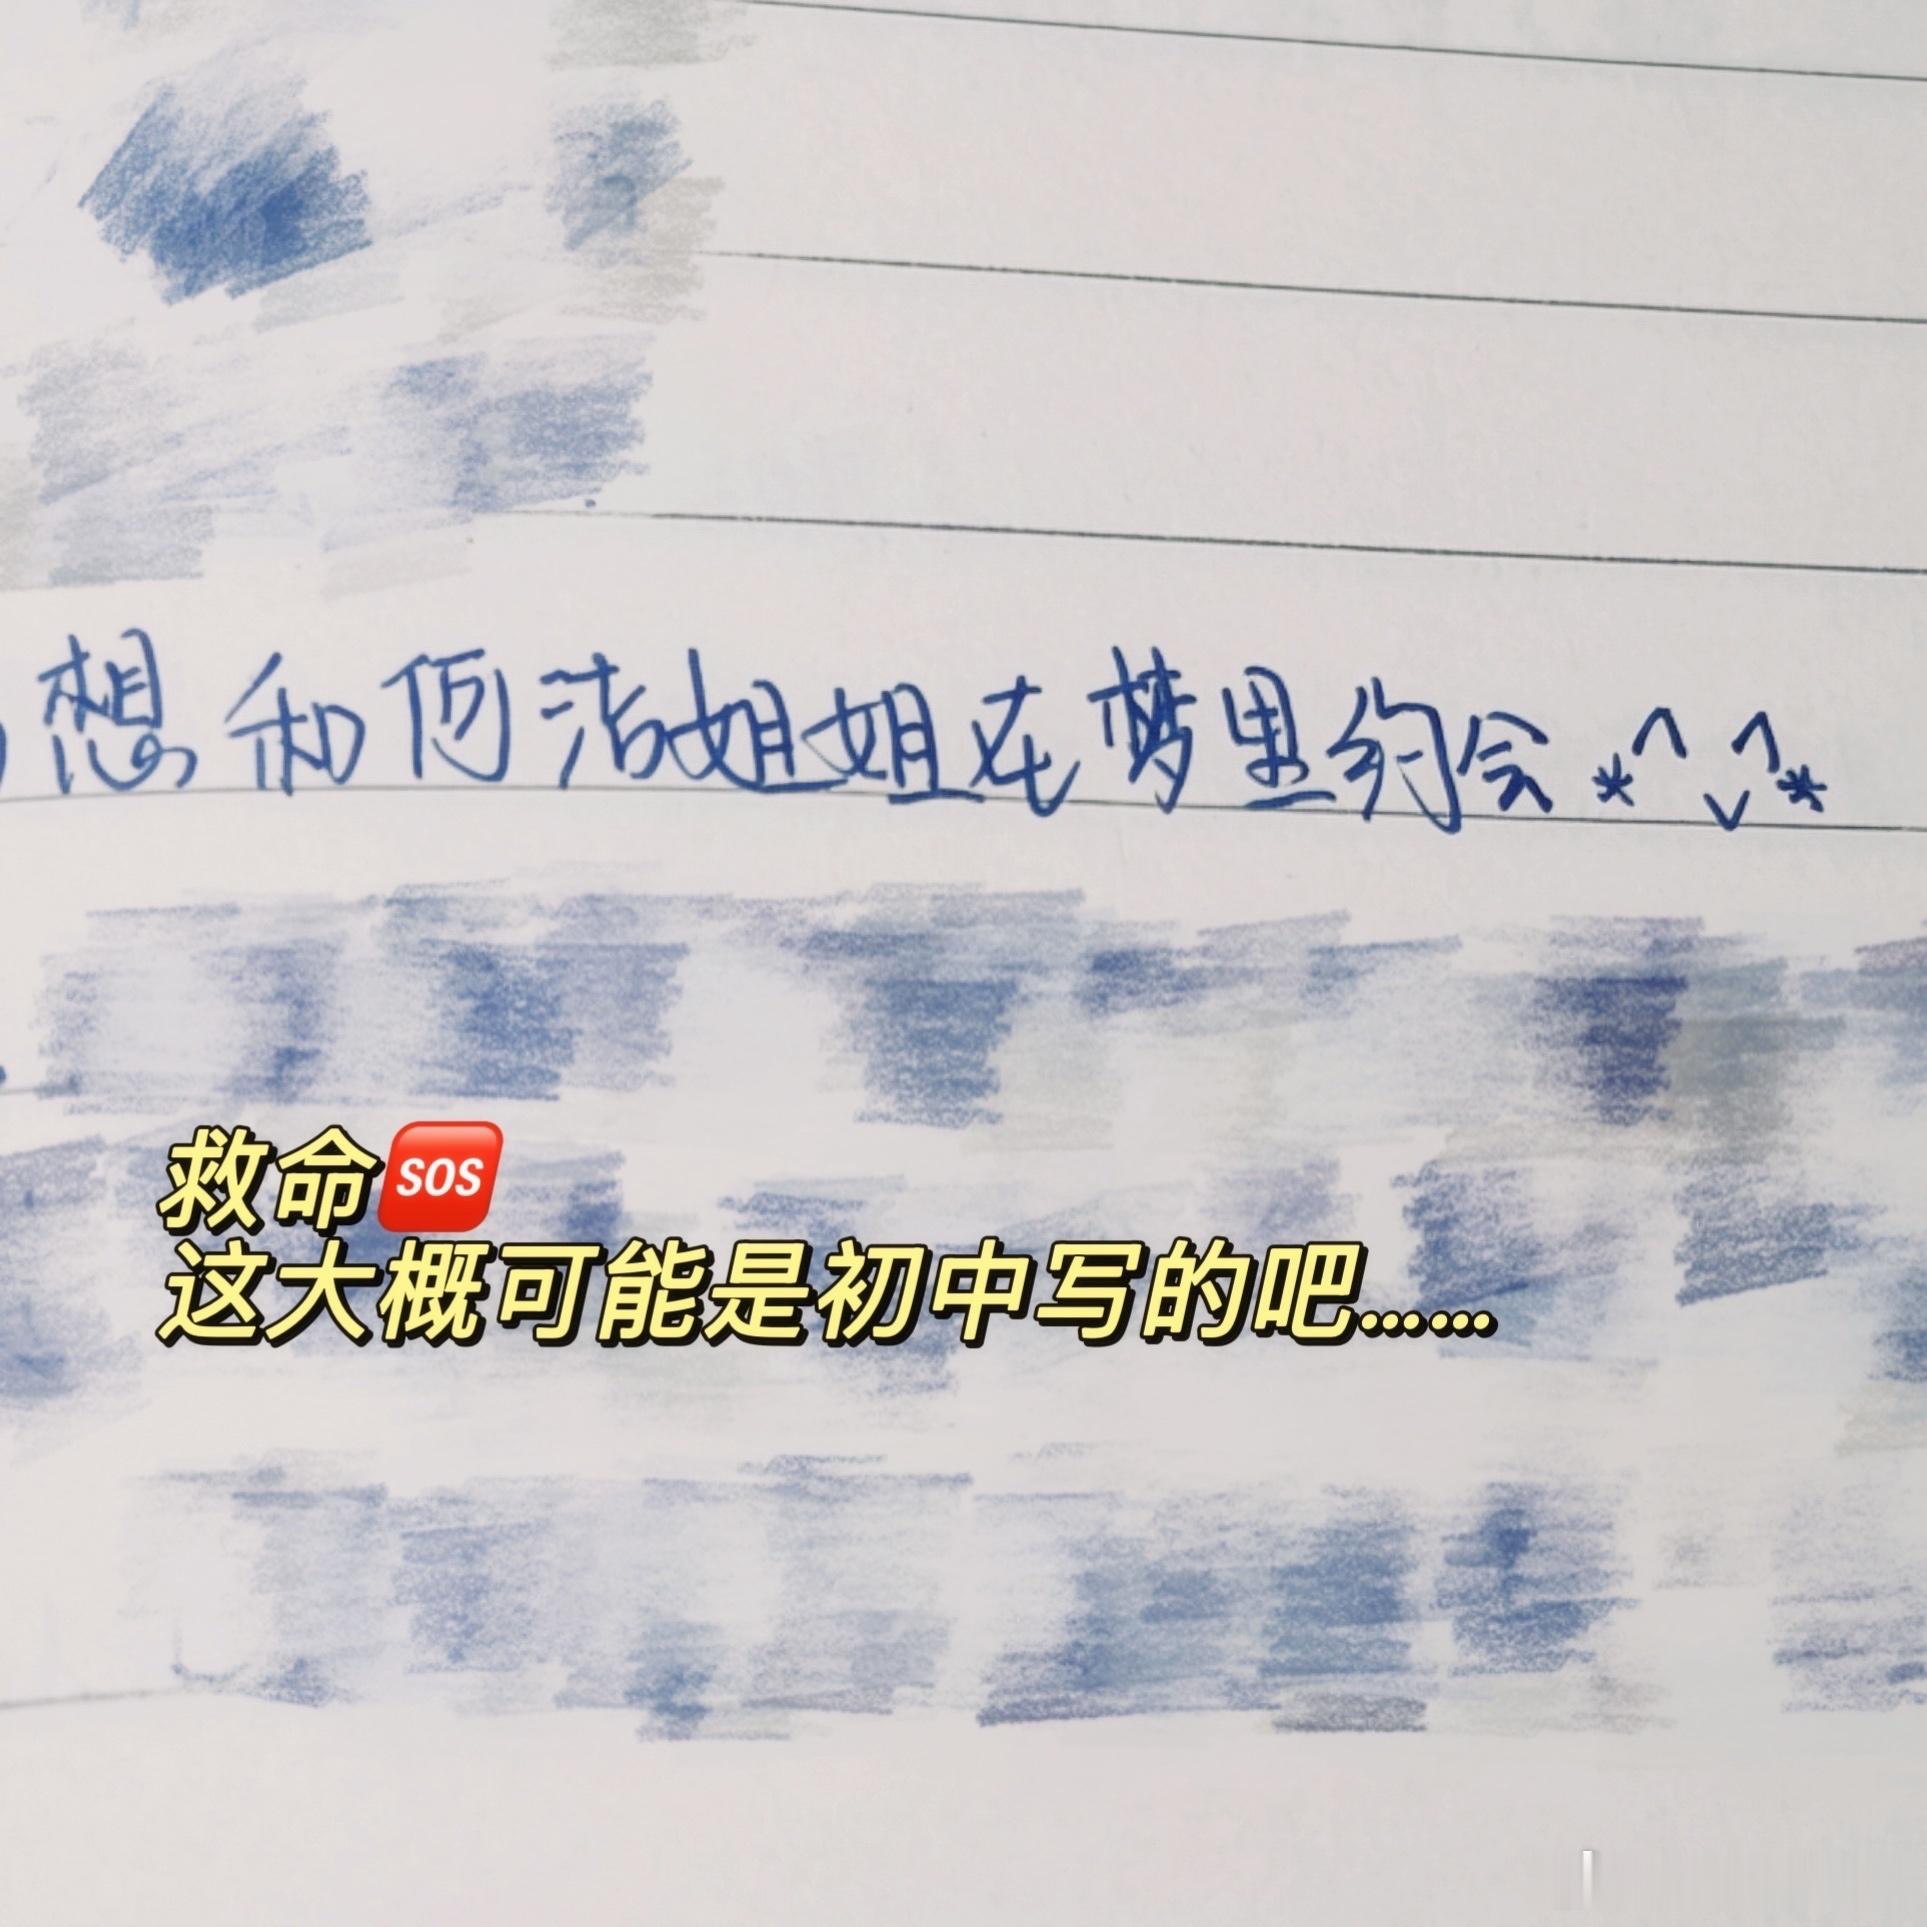 想和何洁姐姐在梦里约会*^v^*
救命🆘
这大概可能是初中写的吧……